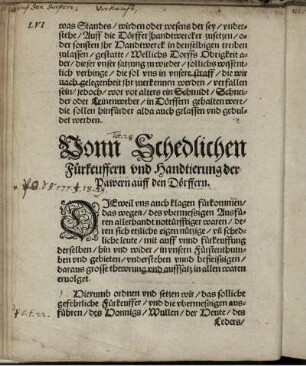 LVI
was Standes / wirden oder wesens der sey / vnder-
stehe / Auff die Dörffer handtwercker zusetzen / o-
der sonsten jhr Handtwerck in denselbigen treiben
zulassen / gestatte / Wellichs Dorffs Obrigkeit a-
ber / dieser vnser satzung zuwider / sollichs wissent-
lich verhinge / die sol vns in vnsere straff / die wir
nach gelegenheit jhr zuerkennen werden / verfallen
sein / jedoch / wor vor alters ein Schmidt / Schnei-
der oder Leinenweber / in Dörffern gehalten wert /
die sollen hinfürder alda auch gelassen vnd gedul-
det werden.
Vonn Schedlichen
Fürkeuffern vnd Handtierung der
Pawern auff den Dörffern.
DIEweil vns auch klagen fürkommen /
das wegen / des vbermesigen Ausfü-
ren allerhandt notturfftiger waren / de-
ren sich etzliche eigen nützige / vñ sched-
liche leute / mit auff vnnd fürkeuffung
derselben / hin vnd wider / in vnsern Fürstenthum-
ben vnd gebieten / vnderstehen vnnd befleissigen /
daraus grosse thewrung vnd auffsatz in allen waren
eruolget.
Hierumb ordnen vnd setzen wir / das solliche
geferliche Fürkeuffer / vnd die vbermesigen aus-
führen / des Honnigs / Wullen / der Heute / des
Leders /